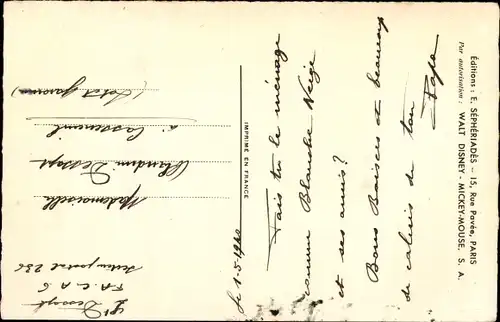 Éditions : E. SÉPHÉRIADÈS – 15, Rue Pavée, PARIS
Par autorisation : WALT DISNEY - MICKEY-MOUSE, S. A.
IMPRIMÉ EN FRANCE
le 1-5-1940
Fais tu le ménage
comme Blanche Neige
et ses amis?
Bons Baisers et beaucoup
de calins de ton
Papa
Dessept
F.A.C.A 6
Secteur postal 236
Mademoiselle
Claudine Dessept
à Casseneuil
(Lot et Garonne)